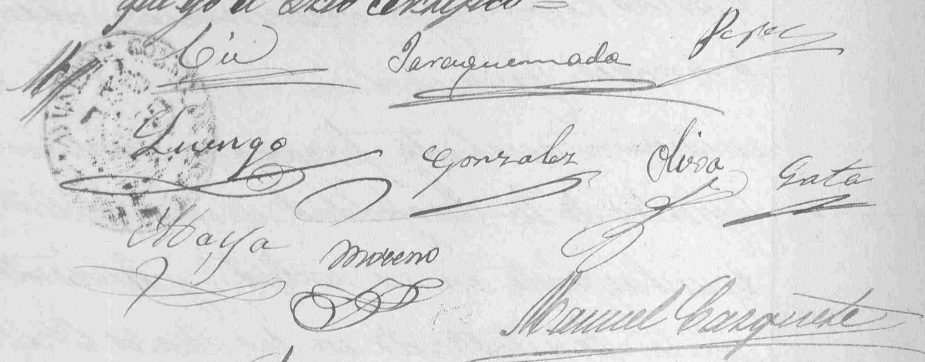 que yo el Srio certifico =
Cid Jaraquemada Perez
Luengo Gonzalez Oliva Gata
Maya Moreno
Manuel Cazquete